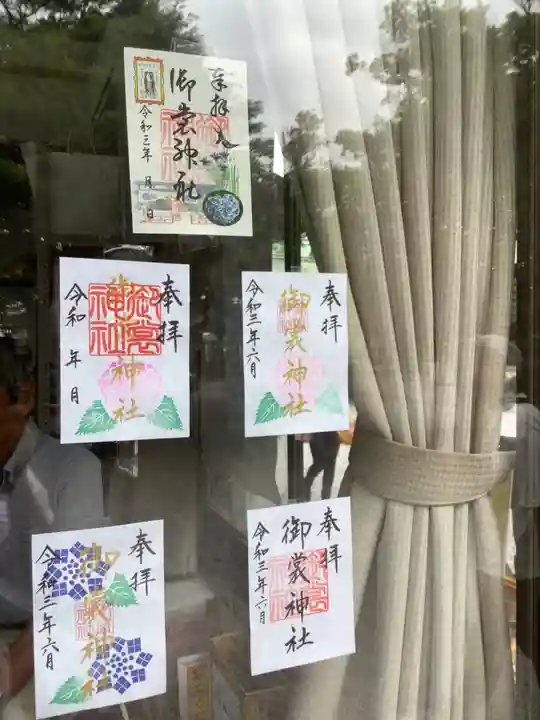 奉拝
御裳神社
令和三年 月 日
奉拝
御裳神社
令和 年 月
奉拝
御裳神社
令和三年六月
奉拝
御裳神社
令和三年六月
奉拝
御裳神社
令和三年六月